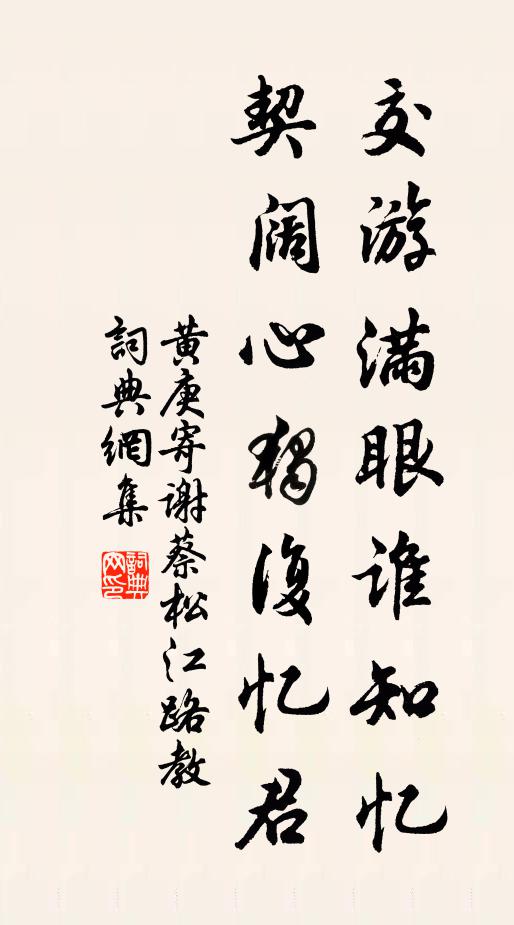 交游满眼谁知忆
契阔心犹复忆君
黄庚寄谢蔡松江路教
詞典網集
詞典
网印